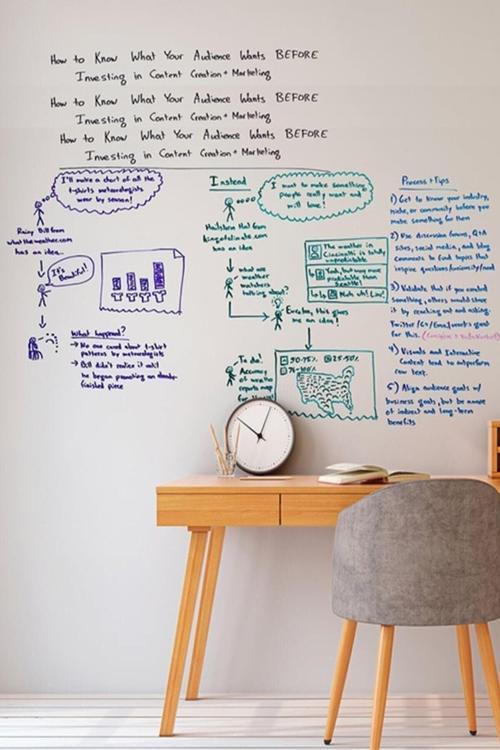 How to Know What Your Audience Wants BEFORE
Investing in Content Creation + Marketing
How to Know What Your Audience Wants BEFORE
Investing in Content Creation + Marketing
How to Know What Your Audience Wants BEFORE
Investing in Content Creation + Marketing
I'll make a chart of all the
t-shirts meteorologists
wear by season!
Rainy Bill from
whattheweather.com
has an idea...
It's
Beautiful!
What happened?
→ No one cared about t-shirt
patterns by meteorologists
→ Bill didn't realize it until
he began promoting an already-
finished piece
Instead
I want to make something
people really want and
will love!
Hailstorm Hal from
kingofclimate.com
has an idea
The weather in
Cincinatti is totally
unpredictable
Yeah, but way more
predictable than
Seattle!
Nuh uh! Lin!
what are
weather
watchers
talking about?
Eureka, this gives
me an idea!
To do:
Accuracy
of weather
reports map
for
50-75%
25-50%
76-100%
Process + Tips
1) Get to know your industry,
niche, or community before you
make something for them
2) Use discussion forums, Q+A
sites, social media, and blog
comments to find topics that
inspire questions/curiosity/need
3) Validate that if you created
something, others would share
it by reaching out and asking.
Twitter/G+/Email are great
for this.
4) Visuals and Interactive
Content tend to outperform
raw text.
5) Align audience goals w/
business goals, but be aware
of indirect and long-term
benefits